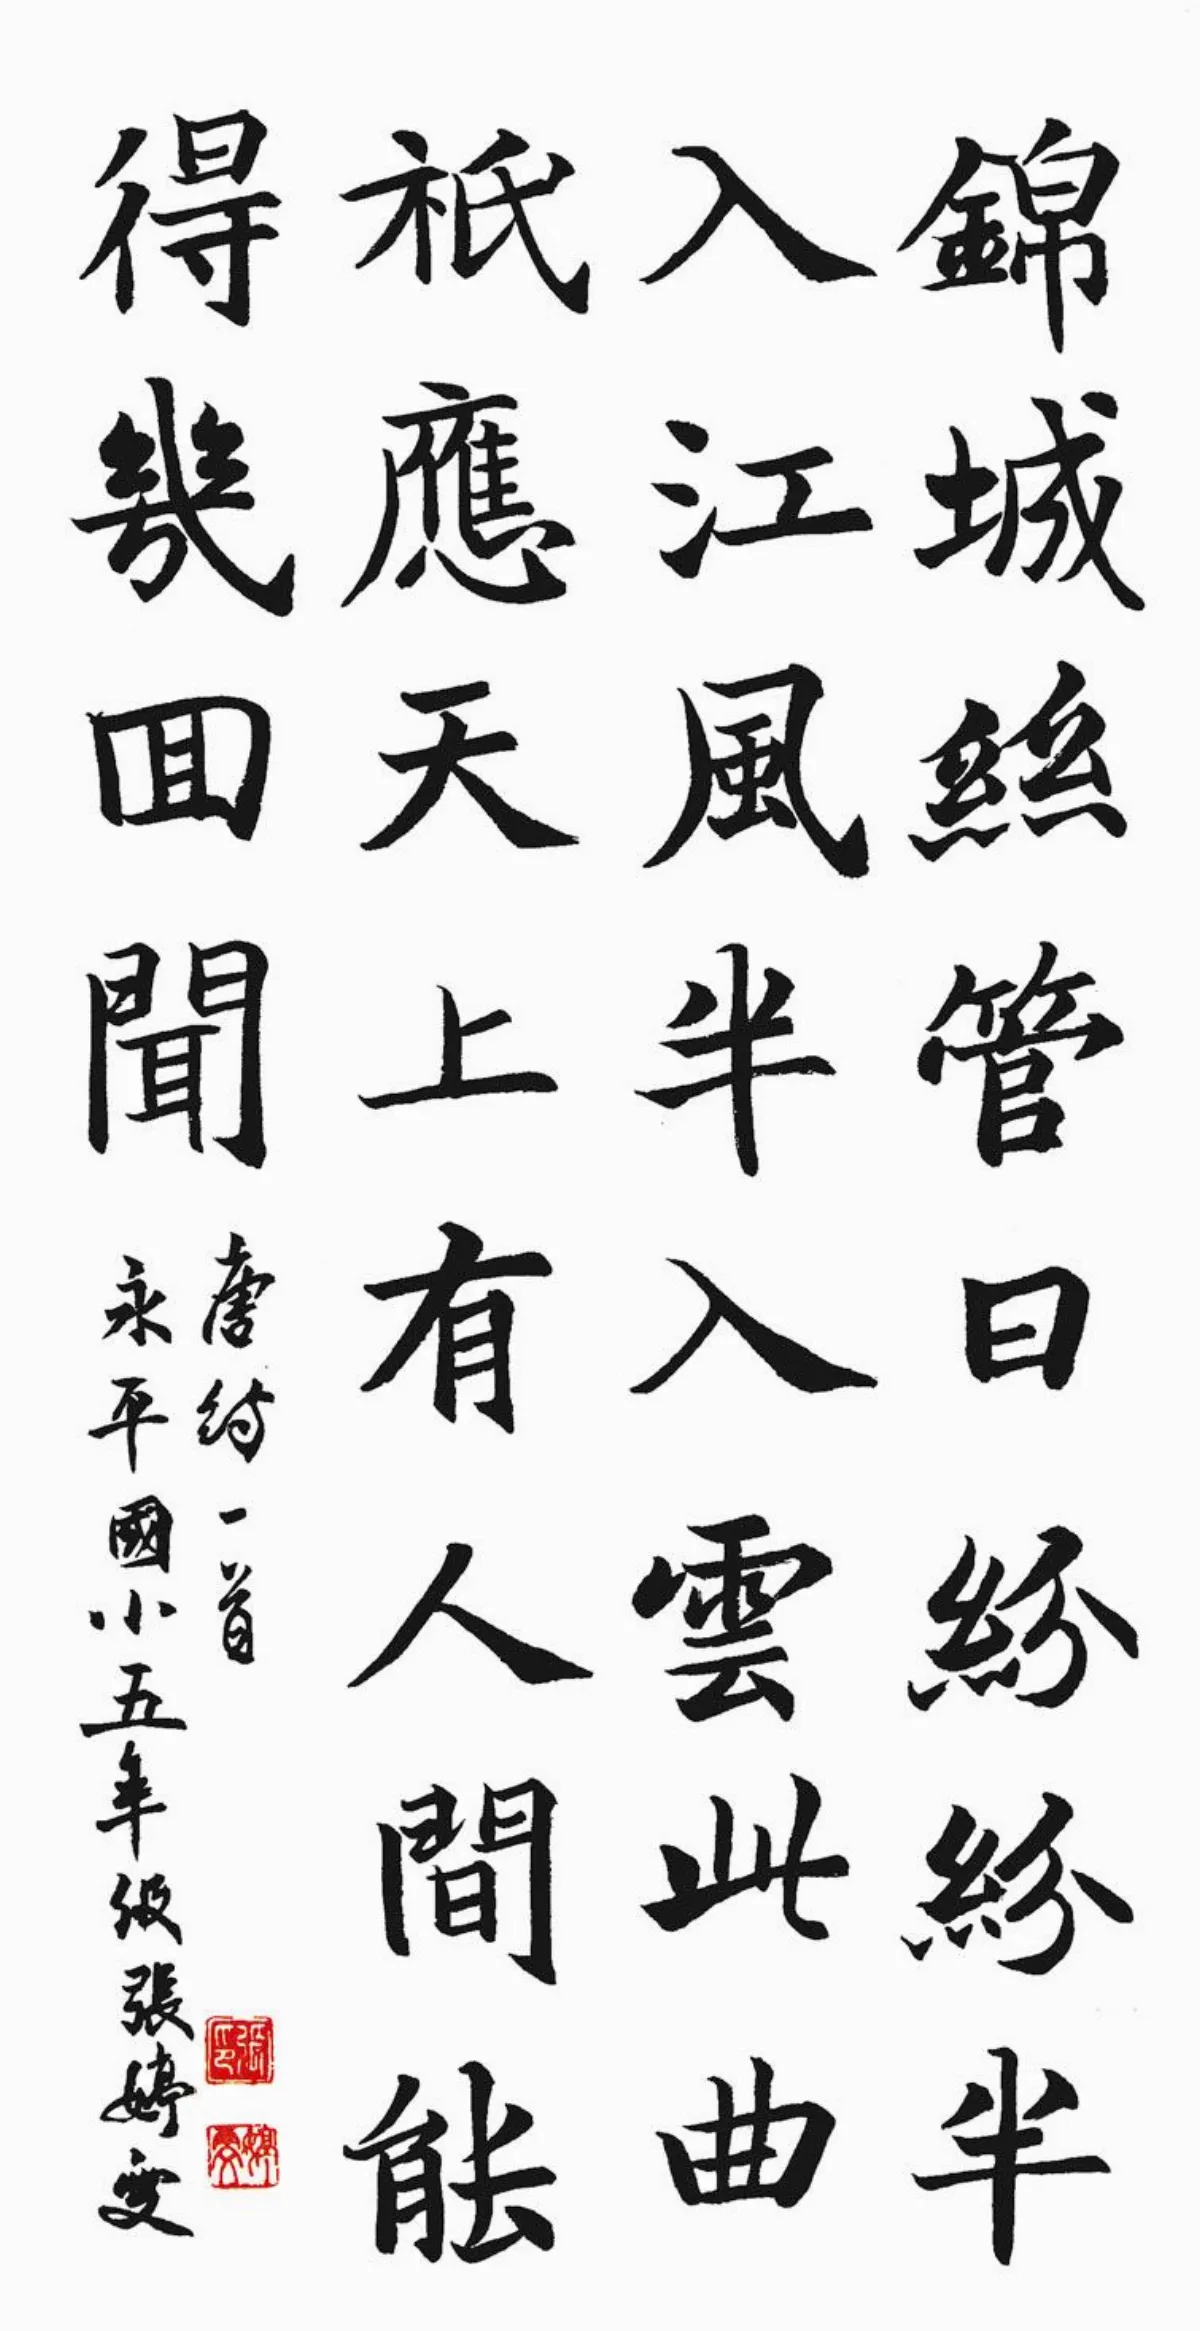 錦城絲管日紛紛半
入江風半入雲此曲
祇應天上有人間能
得幾回聞
唐詩一首
永平國小五年級張婷雯